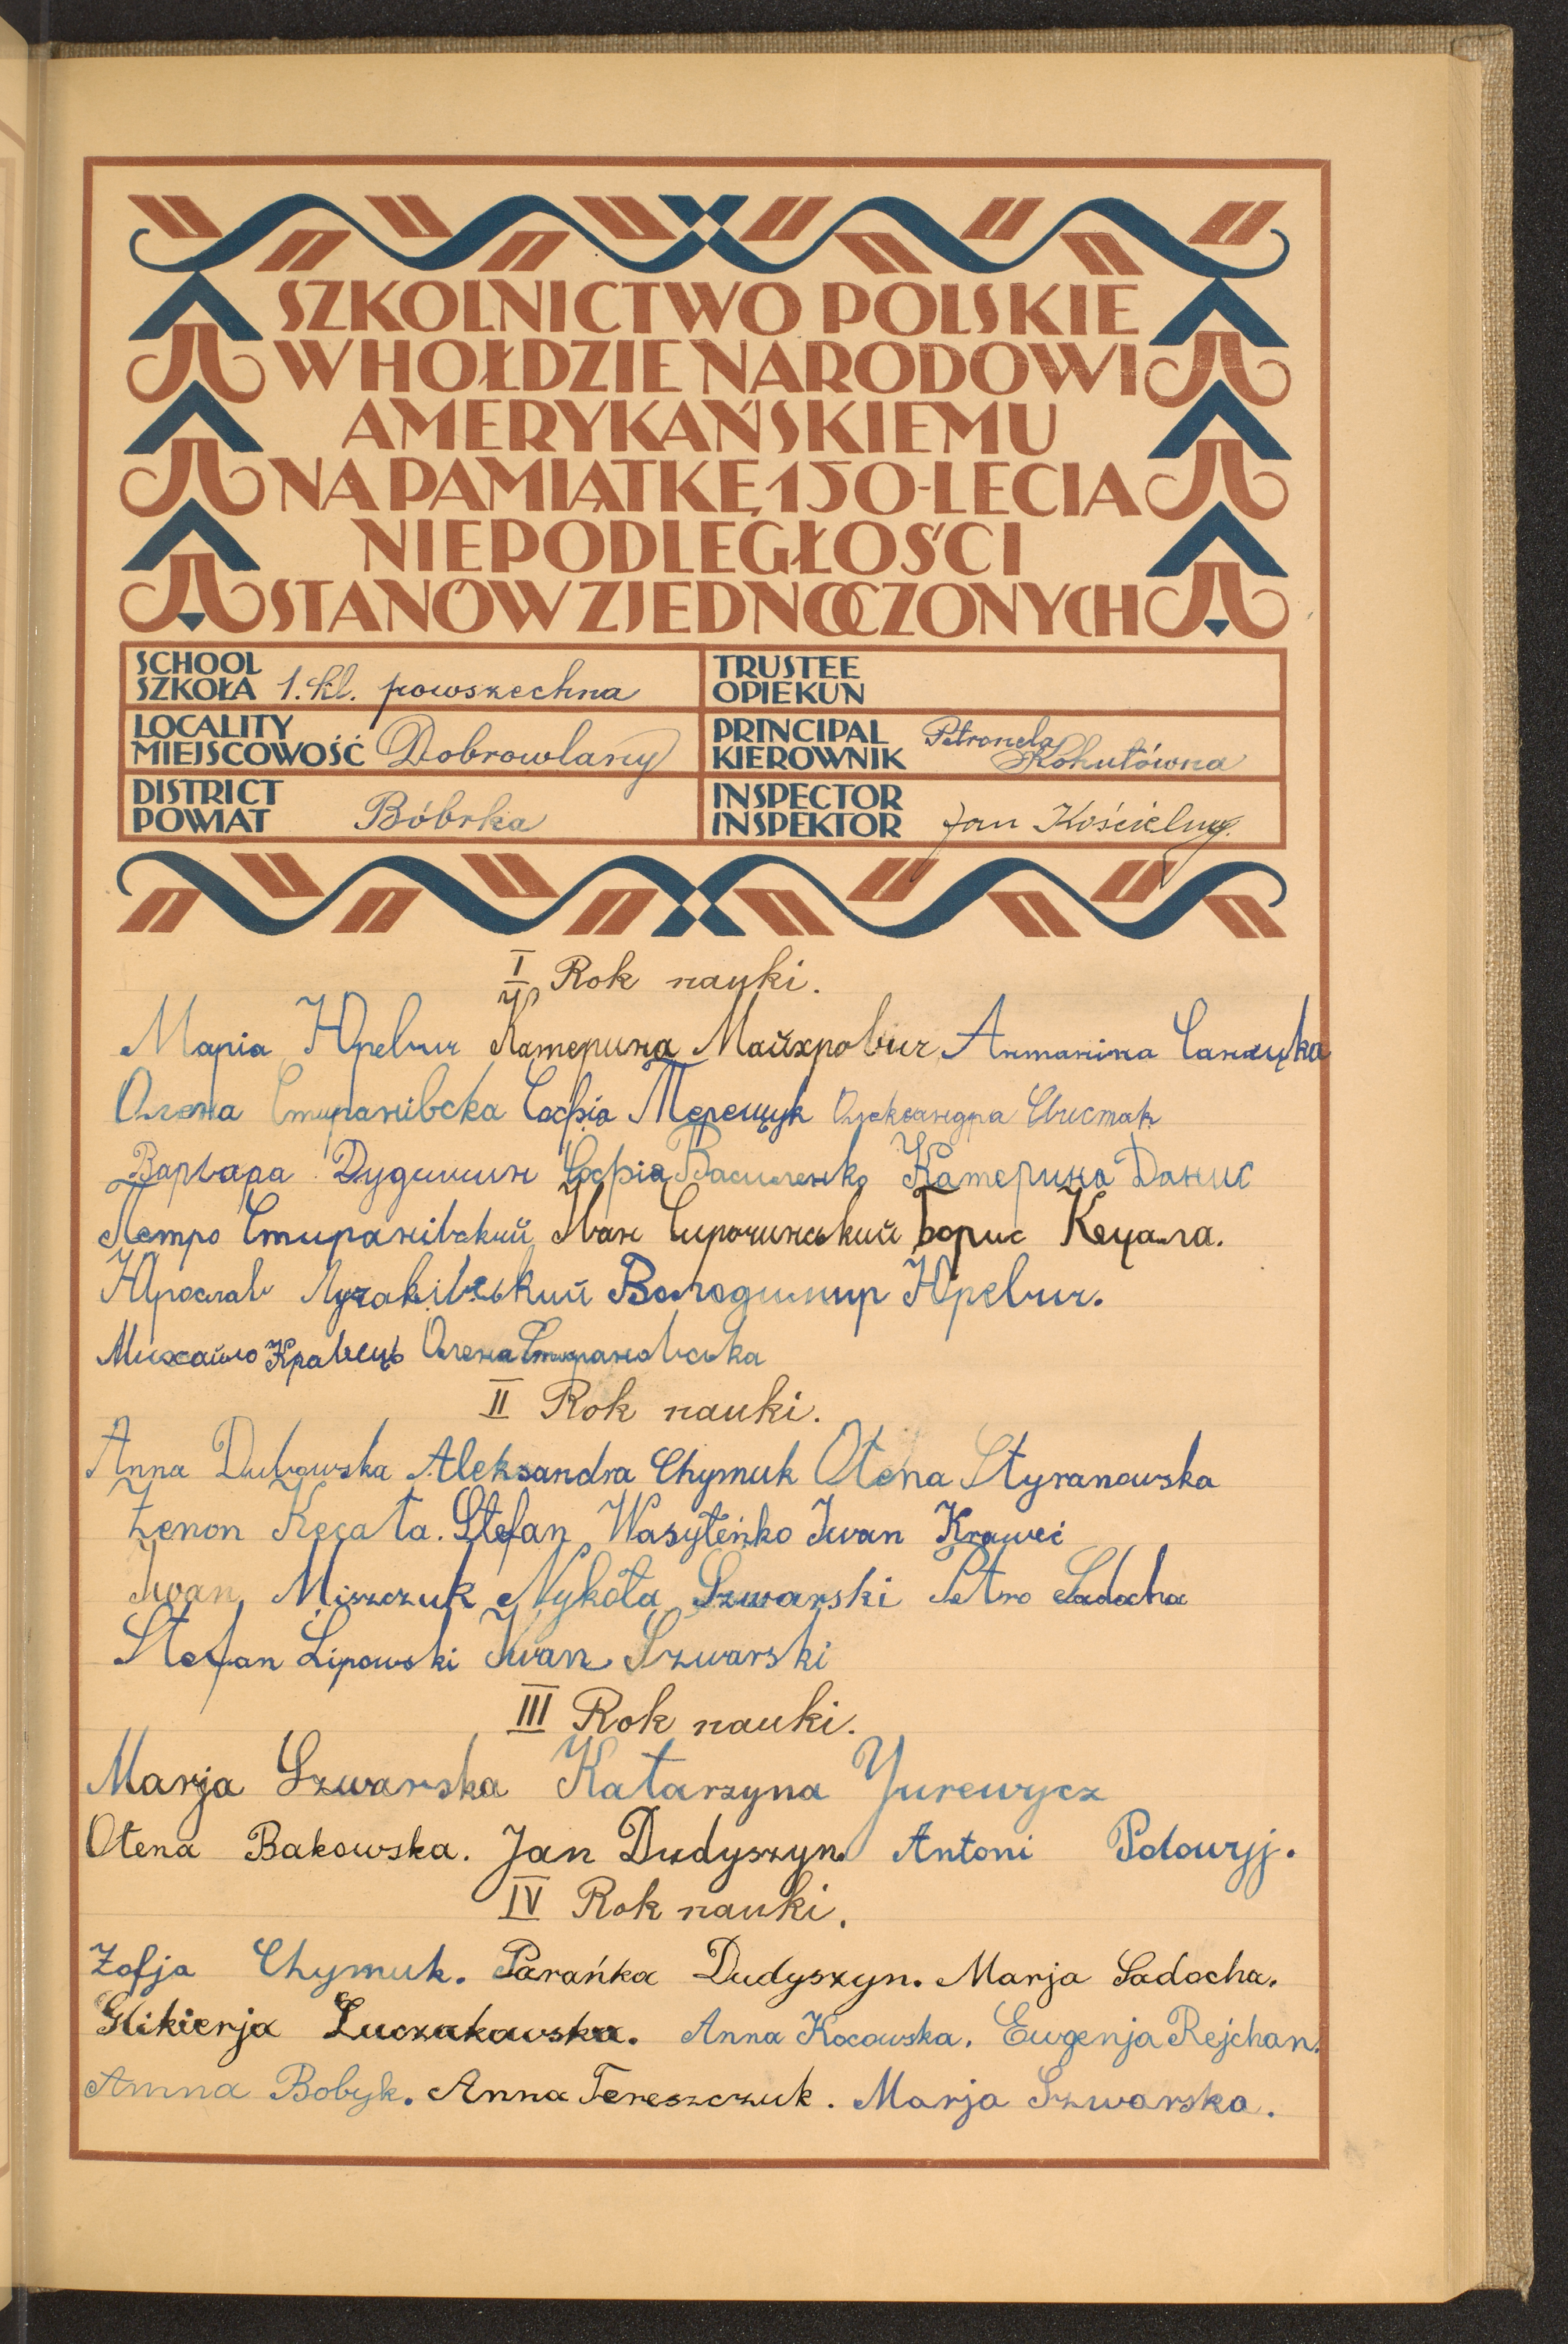 SZKOLNICTWO POLSKIE
W HOŁDZIE NARODOWI
AMERYKAŃSKIEMU
NA PAMIĄTKĘ 150-LECIA
NIEPODLEGŁOŚCI
STANÓW ZJEDNOCZONYCH
SCHOOL
SZKOŁA 1. kl. powszechna
TRUSTEE
OPIEKUN
LOCALITY
MIEJSCOWOŚĆ Dobrowlany
PRINCIPAL
KIEROWNIK Petronela Kohutówna
DISTRICT
POWIAT Bóbrka
INSPECTOR
INSPEKTOR Jan Kościelny.
I Rok nauki.
Марія Юревич Катерина Майхрович Антаніна
Олена Стиранівска Софія Терещук Олександра Свистак
Варвара Дудишин Софія Василенко Катерина Данис
Петро Стиранівский Іван Сирочинський Борис Кецала.
Ярослав Лучаківський Володимир Юревич.
Михайло Кравець Олена Стирановська
II Rok nauki.
Anna Dubowska Aleksandra Chymuk Ołena Styranowska
Zenon Kecała. Stefan Wasyłeńko Iwan Kraweć
Iwan Miszczuk Nykoła Szwarski Petro Sadocha
Stefan Lipowski Iwan Szwarski
III Rok nauki.
Marja Szwarska Katarzyna Yurewycz
Ołena Bakowska. Jan Dudyszyn Antoni Połowyj.
IV Rok nauki.
Zofja Chymuk. Parańka Dudyszyn. Marja Sadocha.
Glikierja Luczakowska. Anna Kocowska. Ewgenja Rejchan.
Anna Bobyk. Anna Tereszczuk. Marja Szwarska.